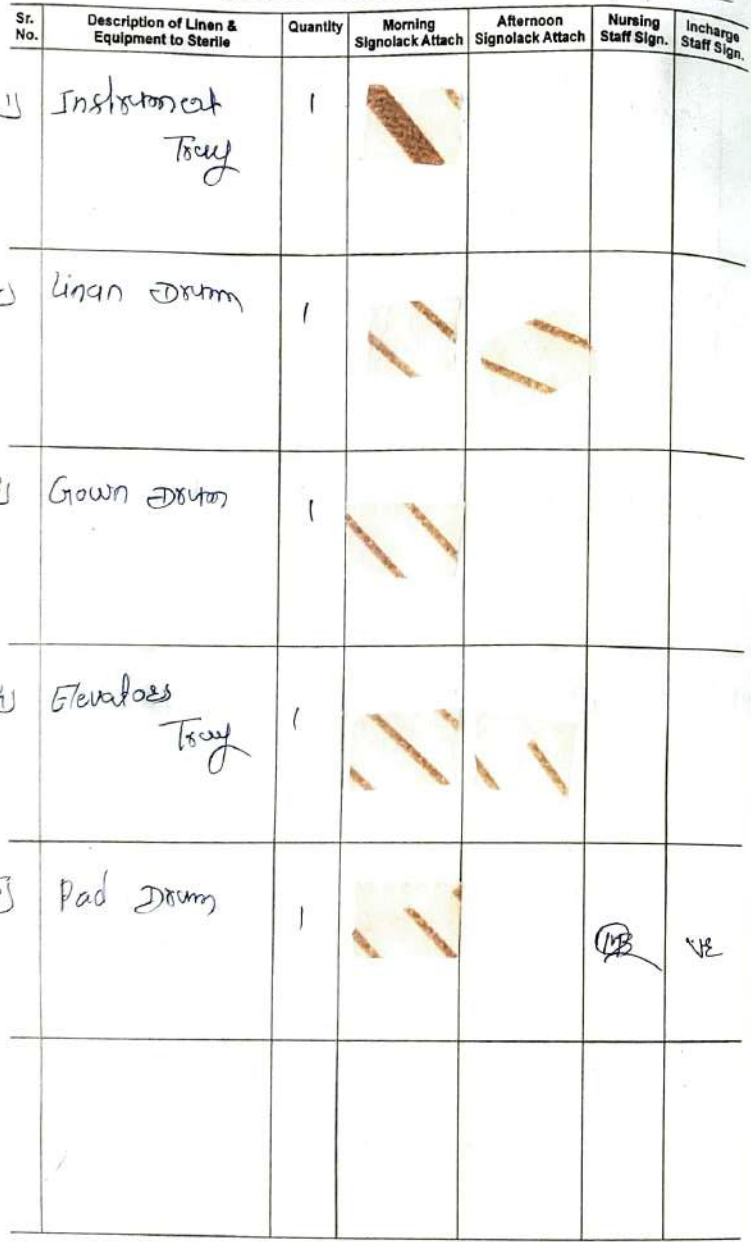 Sr. No. Description of Linen & Equipment to Sterile Quantity Morning Signolack Attach Afternoon Signolack Attach Nursing Staff Sign. Incharge Staff Sign.
1) Instrument 1
Tray
Linan Drum 1
Gown Drum 1
Elevators 1
Tray
Pad Drum 1